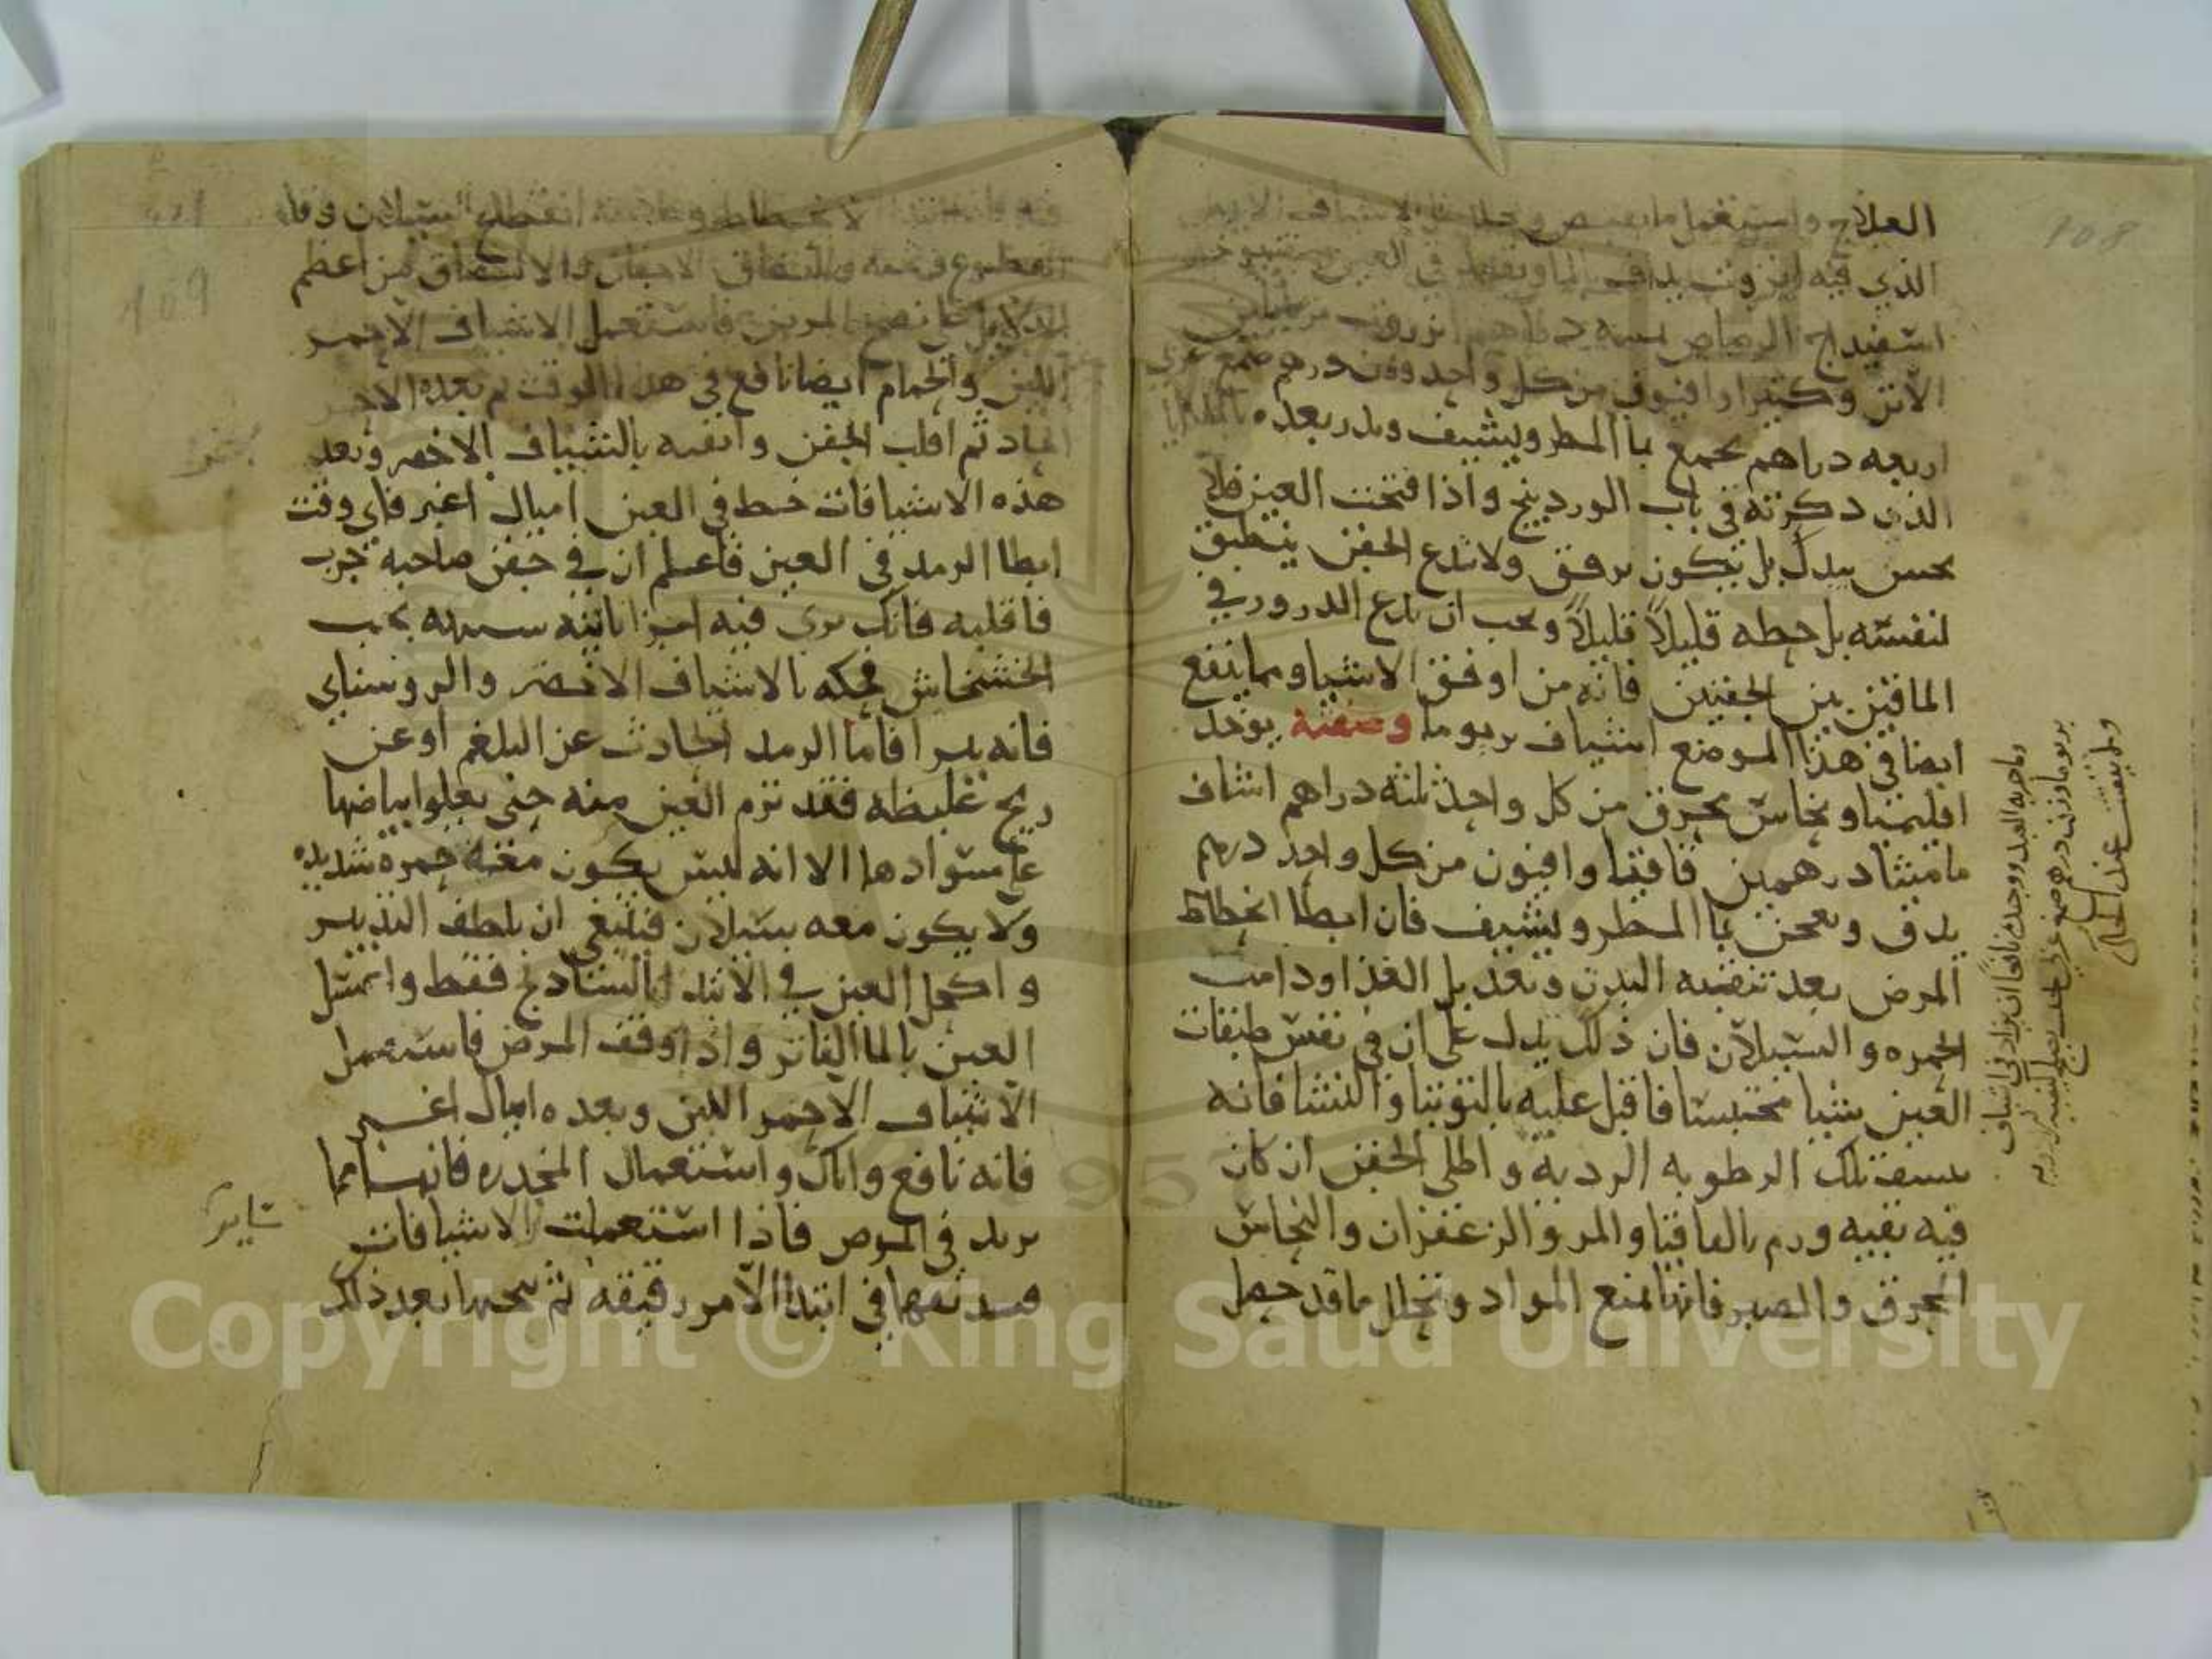 108
العلاج واستعمل ما يقبض ويحلل مثل الاشياف الابيض
الذي فيه انزروت يداف بالماء ويقطر في العين
اسفيداج الرصاص دراهم انزروت مربا بلبن
الاتن وكثيرا وافيون من كل واحد وزن درهم صمغ عربي
اربعه دراهم يجمع بما المطر ويشيف وبدر بعده
الذي ذكرته في باب الوردينج واذا فتحت العين فلا
تحسن بيدك بل يكون برفق ولا تدع الجفن ينطبق
لنفسه بل حطه قليلاً قليلاً ويجب ان تدع الدرور في
الماقين بين الجفنين فانه من اوفق الاشيا ومما ينفع
ايضا في هذا الموضع اشياف بريوما وصفته يوخذ
اقليميا ونحاس محرق من كل واحد ثلثه دراهم اشياف
ماميثا درهمين قاقيا وافيون من كل واحد درهم
يدق ويعجن بما المطر ويشيف فان ابطا انحطاط
المرض بعد تنقيه البدن وتعديل الغذا ودامت
الحمره والسيلان فان ذلك يدل على ان في نفس طبقات
العين شيا محتبسا فاقبل عليه بالتوتيا والنشا فانه
ينشف تلك الرطوبه الرديه واطلي الجفن ان كان
فيه بقيه ورم بالقاقيا والمر والزعفران والنحاس
المحرق والصبر فانها تمنع المواد وتحلل ما قد حصل
وما جربه العبد ووجده نافعا ان يزاد في اشياف
بريوما وزن درهم صمغ عربي
عند الحك
109
الانحطاط وعلامته انقطاع السيلان
الدموع والتصاق الاجفان والالتصاق من اعظم
الدلايل على نضج المرض فاستعمل الاشياف الاحمر
اللين والحمام ايضا نافع في هذا الوقت ثم بعده الاحمر
الحاد ثم اقلب الجفن وانقيه بالشياف الاخضر وبعد
هذه الاشيافات خط في العين اميال اغبر فاي وقت
ابطا الرمد في العين فاعلم ان في جفن صاحبه جرب
فاقلبه فانك ترى فيه اجزا ناتيه شبيهه بحب
الخشخاش فحكه بالاشياف الاخضر والروشناي
فانه يبرا فاما الرمد الحادث عن البلغم او عن
ريح غليظه فقد ترم العين منه حتى يعلوا بياضها
على سوادها الا انه ليس يكون معه حمره شديده
ولا يكون معه سيلان فينبغي ان يلطف التدبير
واكحل العين في الابتدا بالشادنج فقط واغسل
العين بالما الفاتر واذا وقف المرض فاستعمل
الاشياف الاحمر اللين وبعده اميال اغبر
فانه نافع واياك واستعمال المخدره فانها مما
يزيد في المرض فاذا استعملت الاشيافات
في ابتدا الامر رقيقه ثم بعد ذلك